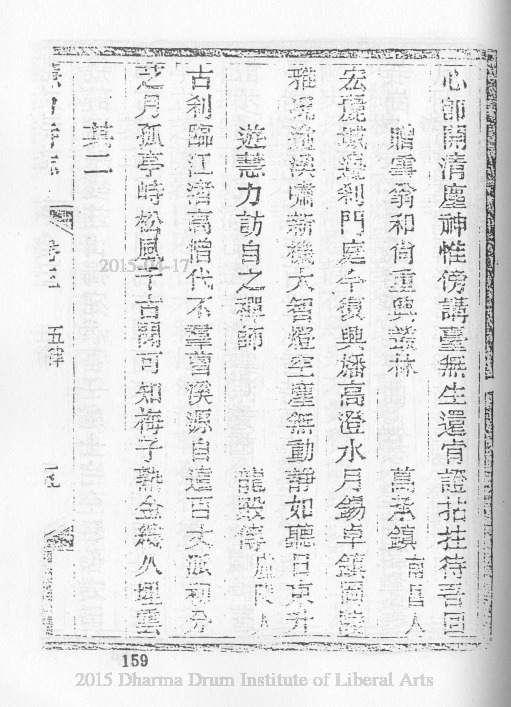 心即開清塵神惟傍講臺無生還肯證拈拄待吾回
贈雲翁和尚重興叢林
萬承鎮
南昌人
宏麗域邊刹門庭今復興旛高澄水月錫卓鎮
雅況逾溪嘯新機大智燈空塵無動靜如聽日東升
遊慧力訪自之禪師
龍毀傳
古利臨江渚高僧代不羣曹溪源自遠百丈孤初分
芝月孤亭峙松風千古聞可知梅子熟金幾久埋雲
其二
五律
159
2015-04-17
2015 Dharma Drum Institute of Liberal Arts